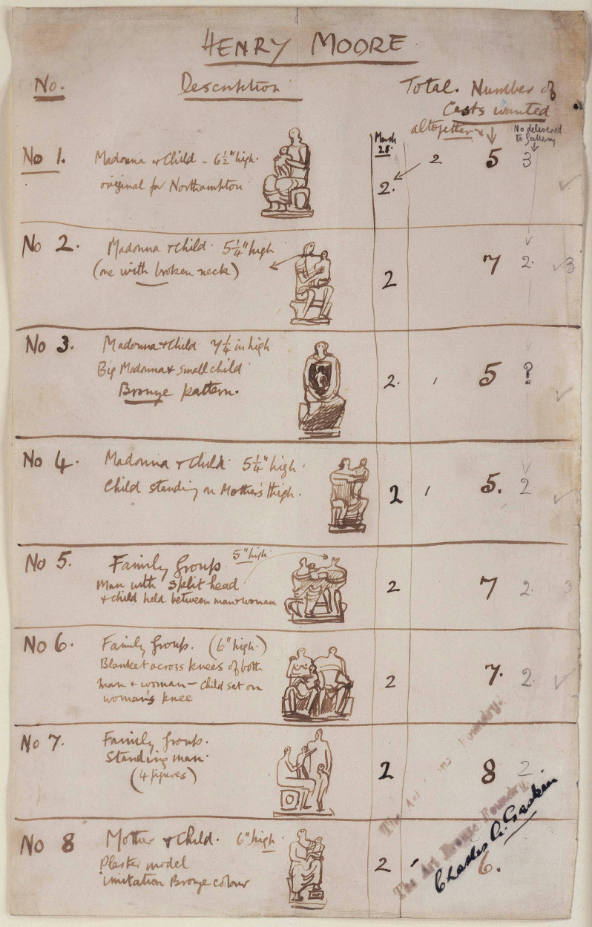 HENRY MOORE
No. Description Total. Number of
Casts wanted
altogether
No delivered
to Gallery
March
28
No 1. Madonna & Child - 6½" high.
original for Northampton
2. 2 5 3
No 2. Madonna & Child. 5¼" high
(one with broken neck)
2 7 2. 3
No 3. Madonna & Child 7¼ in high
Big Madonna & small child
Bronze pattern.
2. 1 5 ?
No 4. Madonna & Child. 5¼" high.
Child standing on Mother's thigh.
2 1 5. 2
No 5. Family Group 5" high.
Man with split head
& child held between man & woman
2 7 2. 3
No 6. Family Group. (6" high.)
Blanket across knees of both
man & woman - child sat on
woman's knee
2 7. 2
No 7. Family Group.
Standing man.
(4 figures)
2 8 2
No 8 Mother & Child. 6" high.
Plaster model
imitation Bronze colour
2 6.
The Art Foundry.
The Art Bronze Foundry.
Charles A. Gaskin